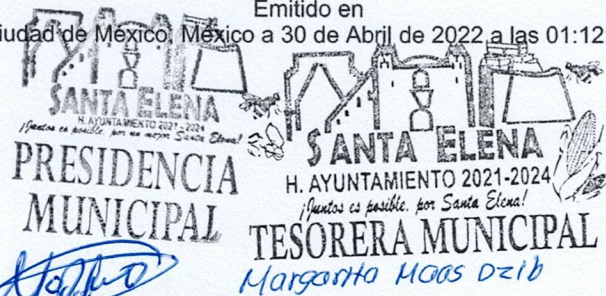 Emitido en
iudad de México, México a 30 de Abril de 2022 a las 01:12
SANTA ELENA
H. AYUNTAMIENTO 2021-2024
¡Juntos es posible, por un mejor Santa Elena!
PRESIDENCIA
MUNICIPAL
SANTA ELENA
H. AYUNTAMIENTO 2021-2024
¡Juntos es posible, por Santa Elena!
TESORERA MUNICIPAL
Margarita Maas Dzib